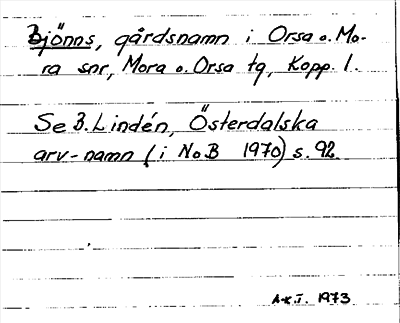 Bjönns, gårdsnamn i Orsa o. Mo-
ra snr, Mora o. Orsa tg, Kopp. l.
Se B. Lindén, Österdalska
arv-namn (i NoB 1970) s. 92.
A-K.T. 1973